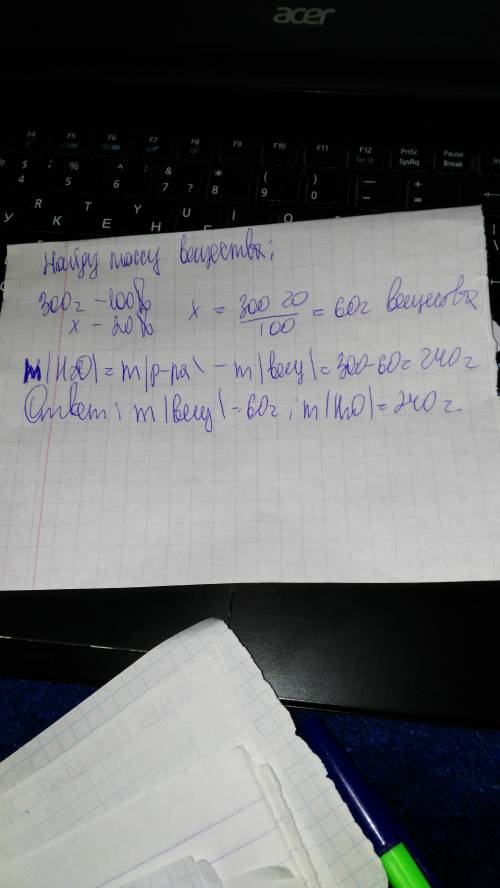 acer
F4 F5 F6 F7 F8 F9 F10 F11 F12 PrtSc Pause
SysRq Break
$ % ^ : & ? * ( ) — +
4 5 6 7 8 9 0 - =
R T Y U I O
У К Е Н Г
Найду массу вещества:
300г – 100%
х – 20%
х = 300 20 / 100 = 60г вещества
m(H2O) = m(р-ра) – m(вещ) = 300-60 = 240г
Ответ: m(вещ) = 60г; m(H2O) = 240г.